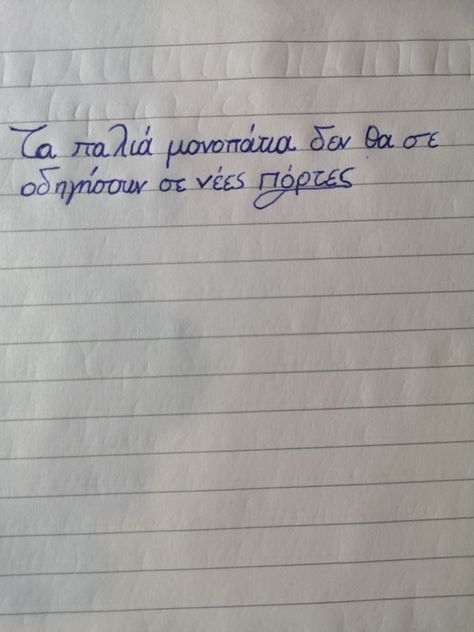 Τα παλιά μονοπάτια δεν θα σε
οδηγήσουν σε νέες πόρτες